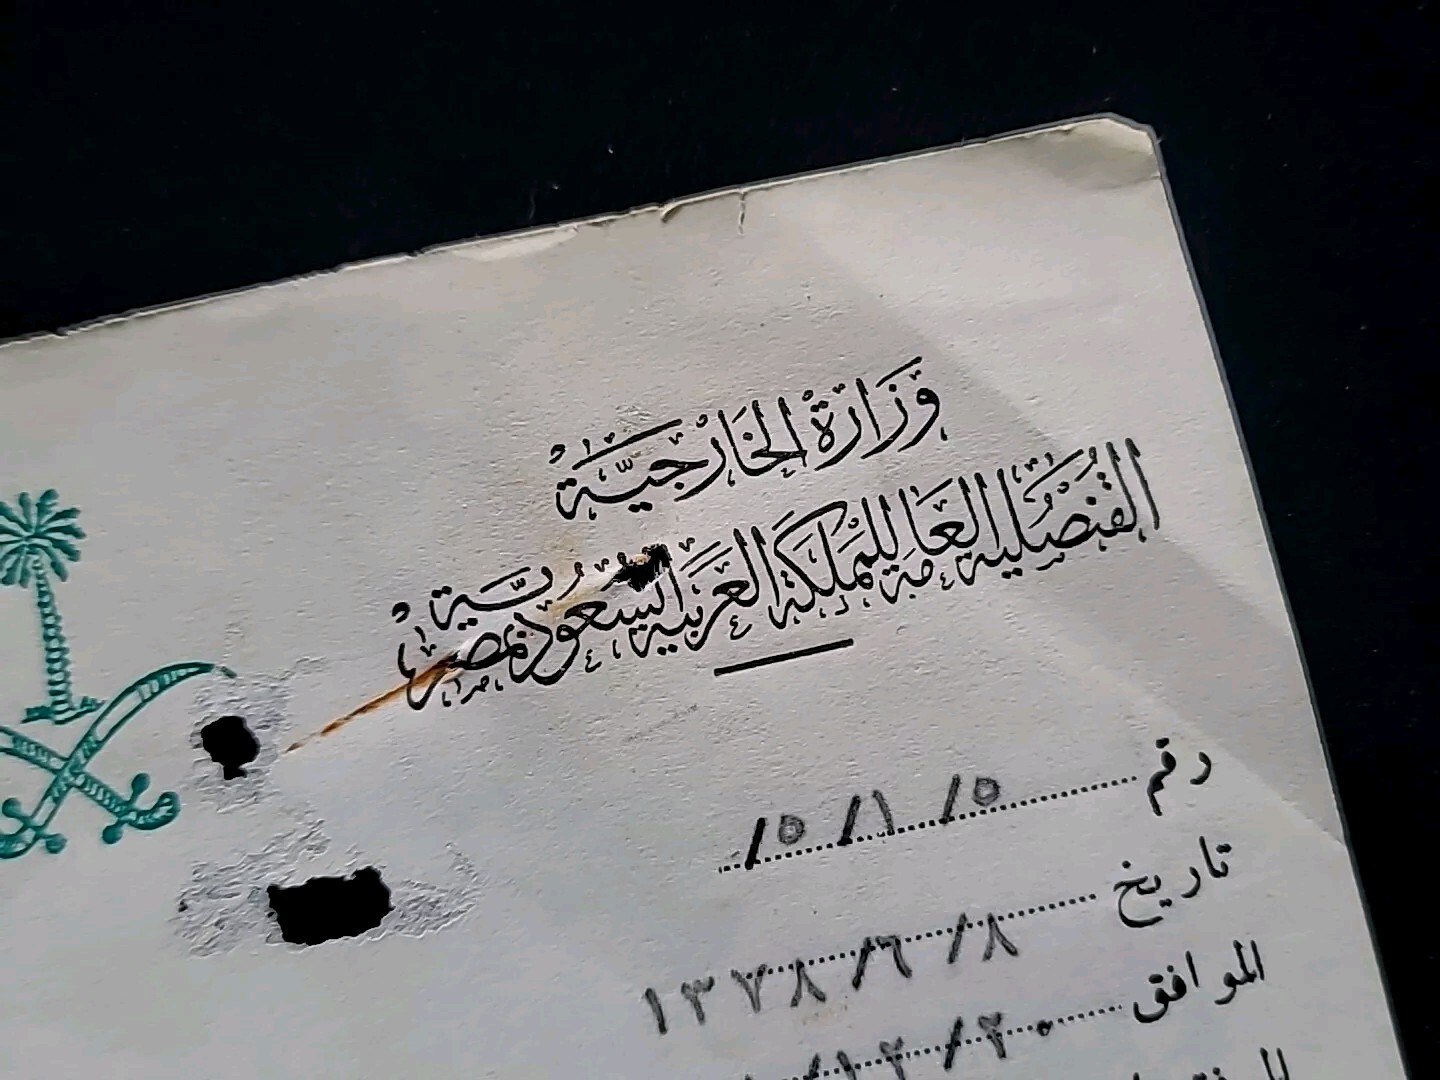 وزارة الخارجية
القنصلية العامة للمملكة العربية السعودية بمصر
رقم ٥/ ١/ ٥/
تاريخ ٨/ ٦/ ١٣٧٨
الموافق ٢٠/ ١٢/